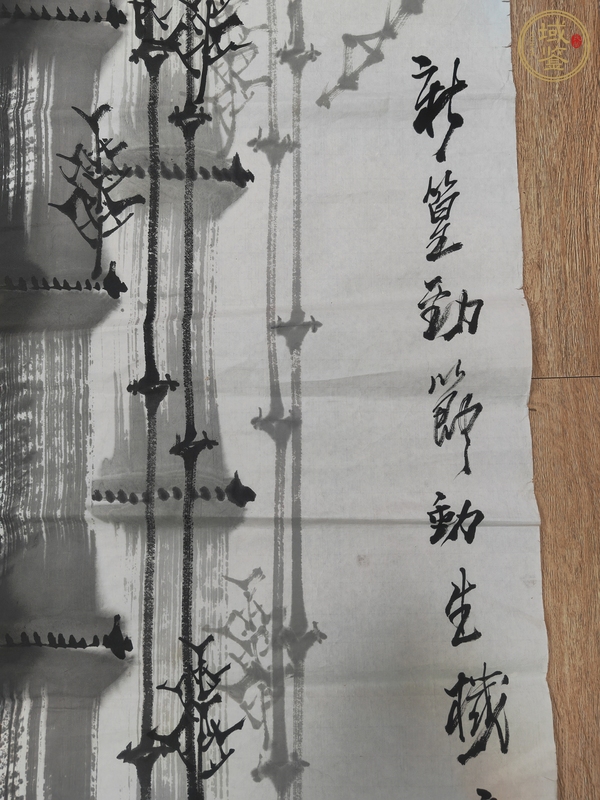 新篁勁節動生機
域鉴